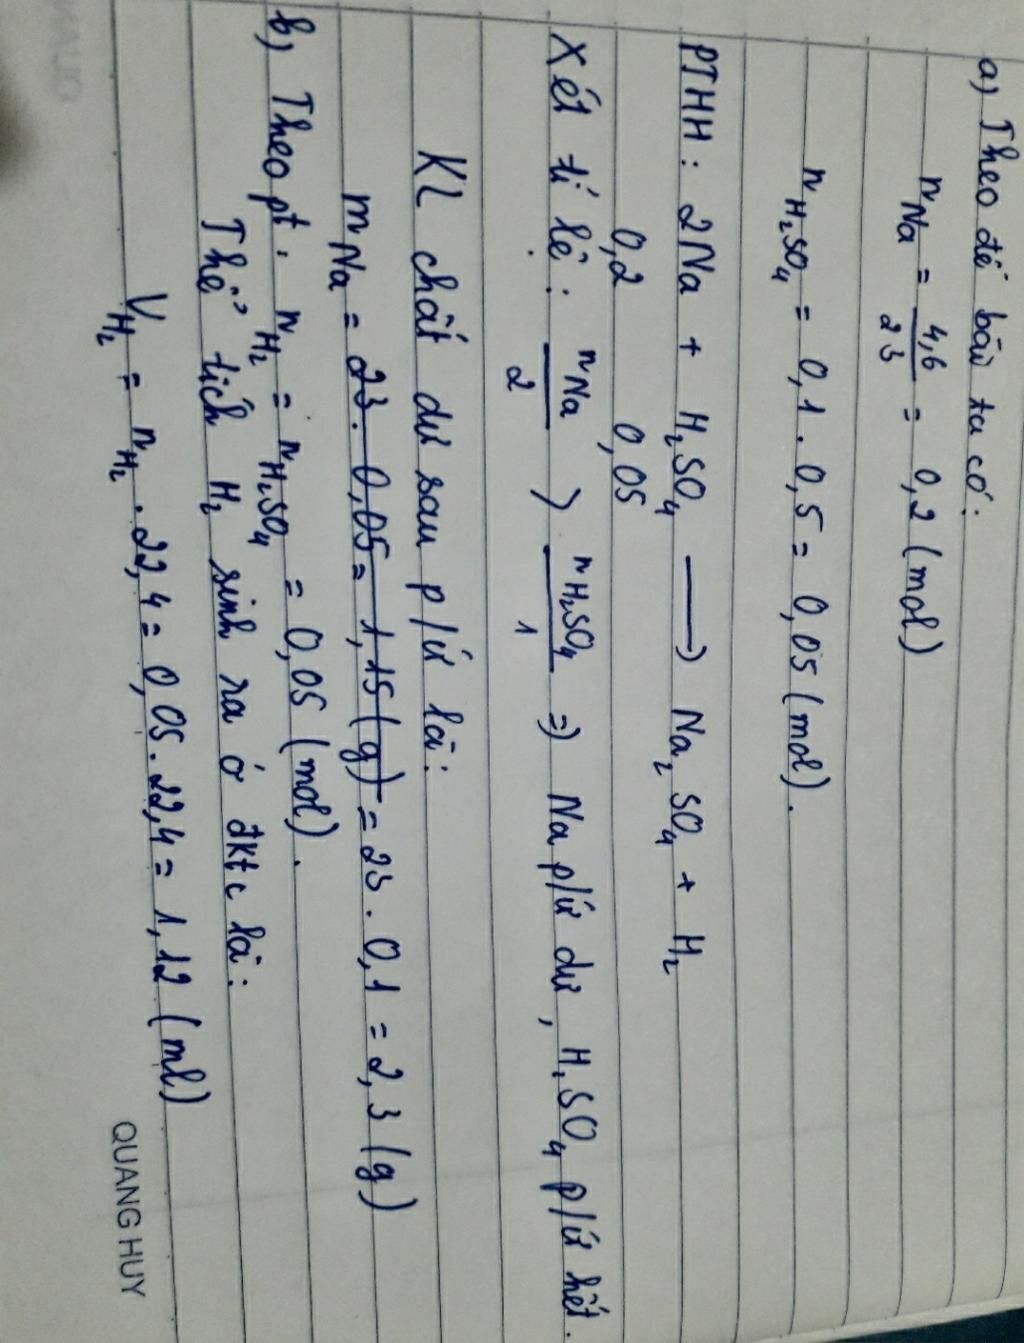 a) Theo đề bài ta có:
nNa = 4,6/23 = 0,2 (mol)
nH₂SO₄ = 0,1 . 0,5 = 0,05 (mol).
PTHH: 2Na + H₂SO₄ → Na₂SO₄ + H₂
0,2 0,05
Xét tỉ lệ: nNa/2 > nH₂SO₄/1 ⇒ Na p/ứ dư, H₂SO₄ p/ứ hết.
KL chất dư sau p/ứ là:
mNa = 23 . 0,05 = 1,15 (g) = 23 . 0,1 = 2,3 (g)
b) Theo pt: nH₂ = nH₂SO₄ = 0,05 (mol).
Thể tích H₂ sinh ra ở đktc là:
VH₂ = nH₂ . 22,4 = 0,05 . 22,4 = 1,12 (ml)
QUANG HUY